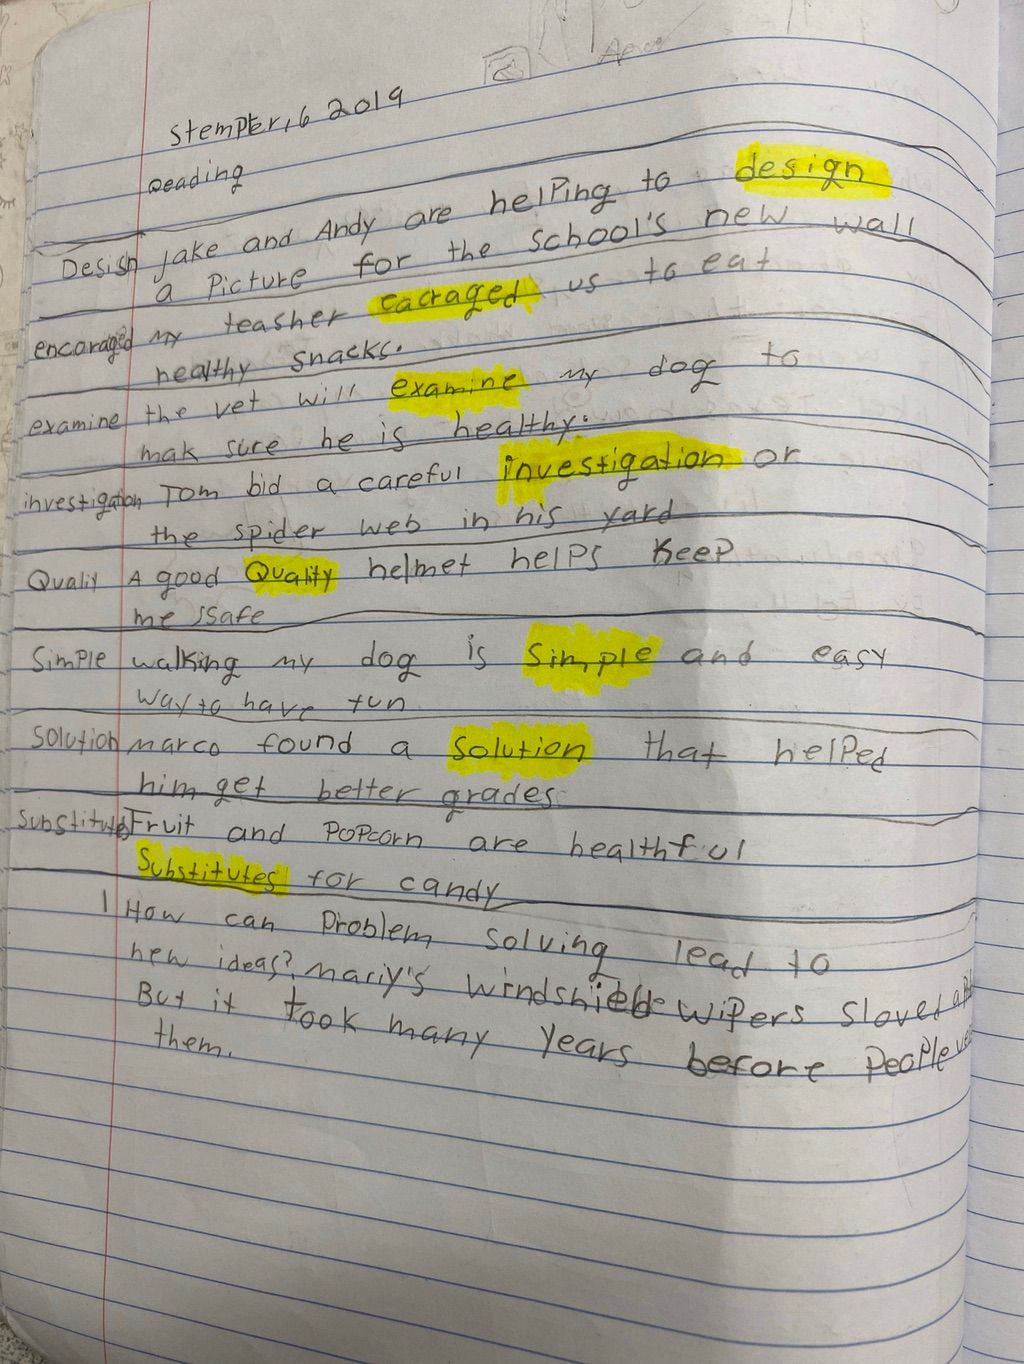 stempter, 6 2019
Reading
Design Jake and Andy are helping to design
a Picture for the school's new wall
encoraged my teasher eacraged us to eat
healthy snacks.
examine the vet will examine my dog to
mak sure he is healthy.
investigation Tom bid a careful investigation or
the spider web in his yard
Qualit A good Quality helmet helps keep
me safe
Simple walking my dog is Simple and easy
way to have fun
Solution marco found a Solution that helped
him get better grades
Substitutes Fruit and Popcorn are healthful
Substitutes for candy
1 How can Problem solving lead to
new ideas? mariy's windshield wipers slovet
But it took many years before People
them.